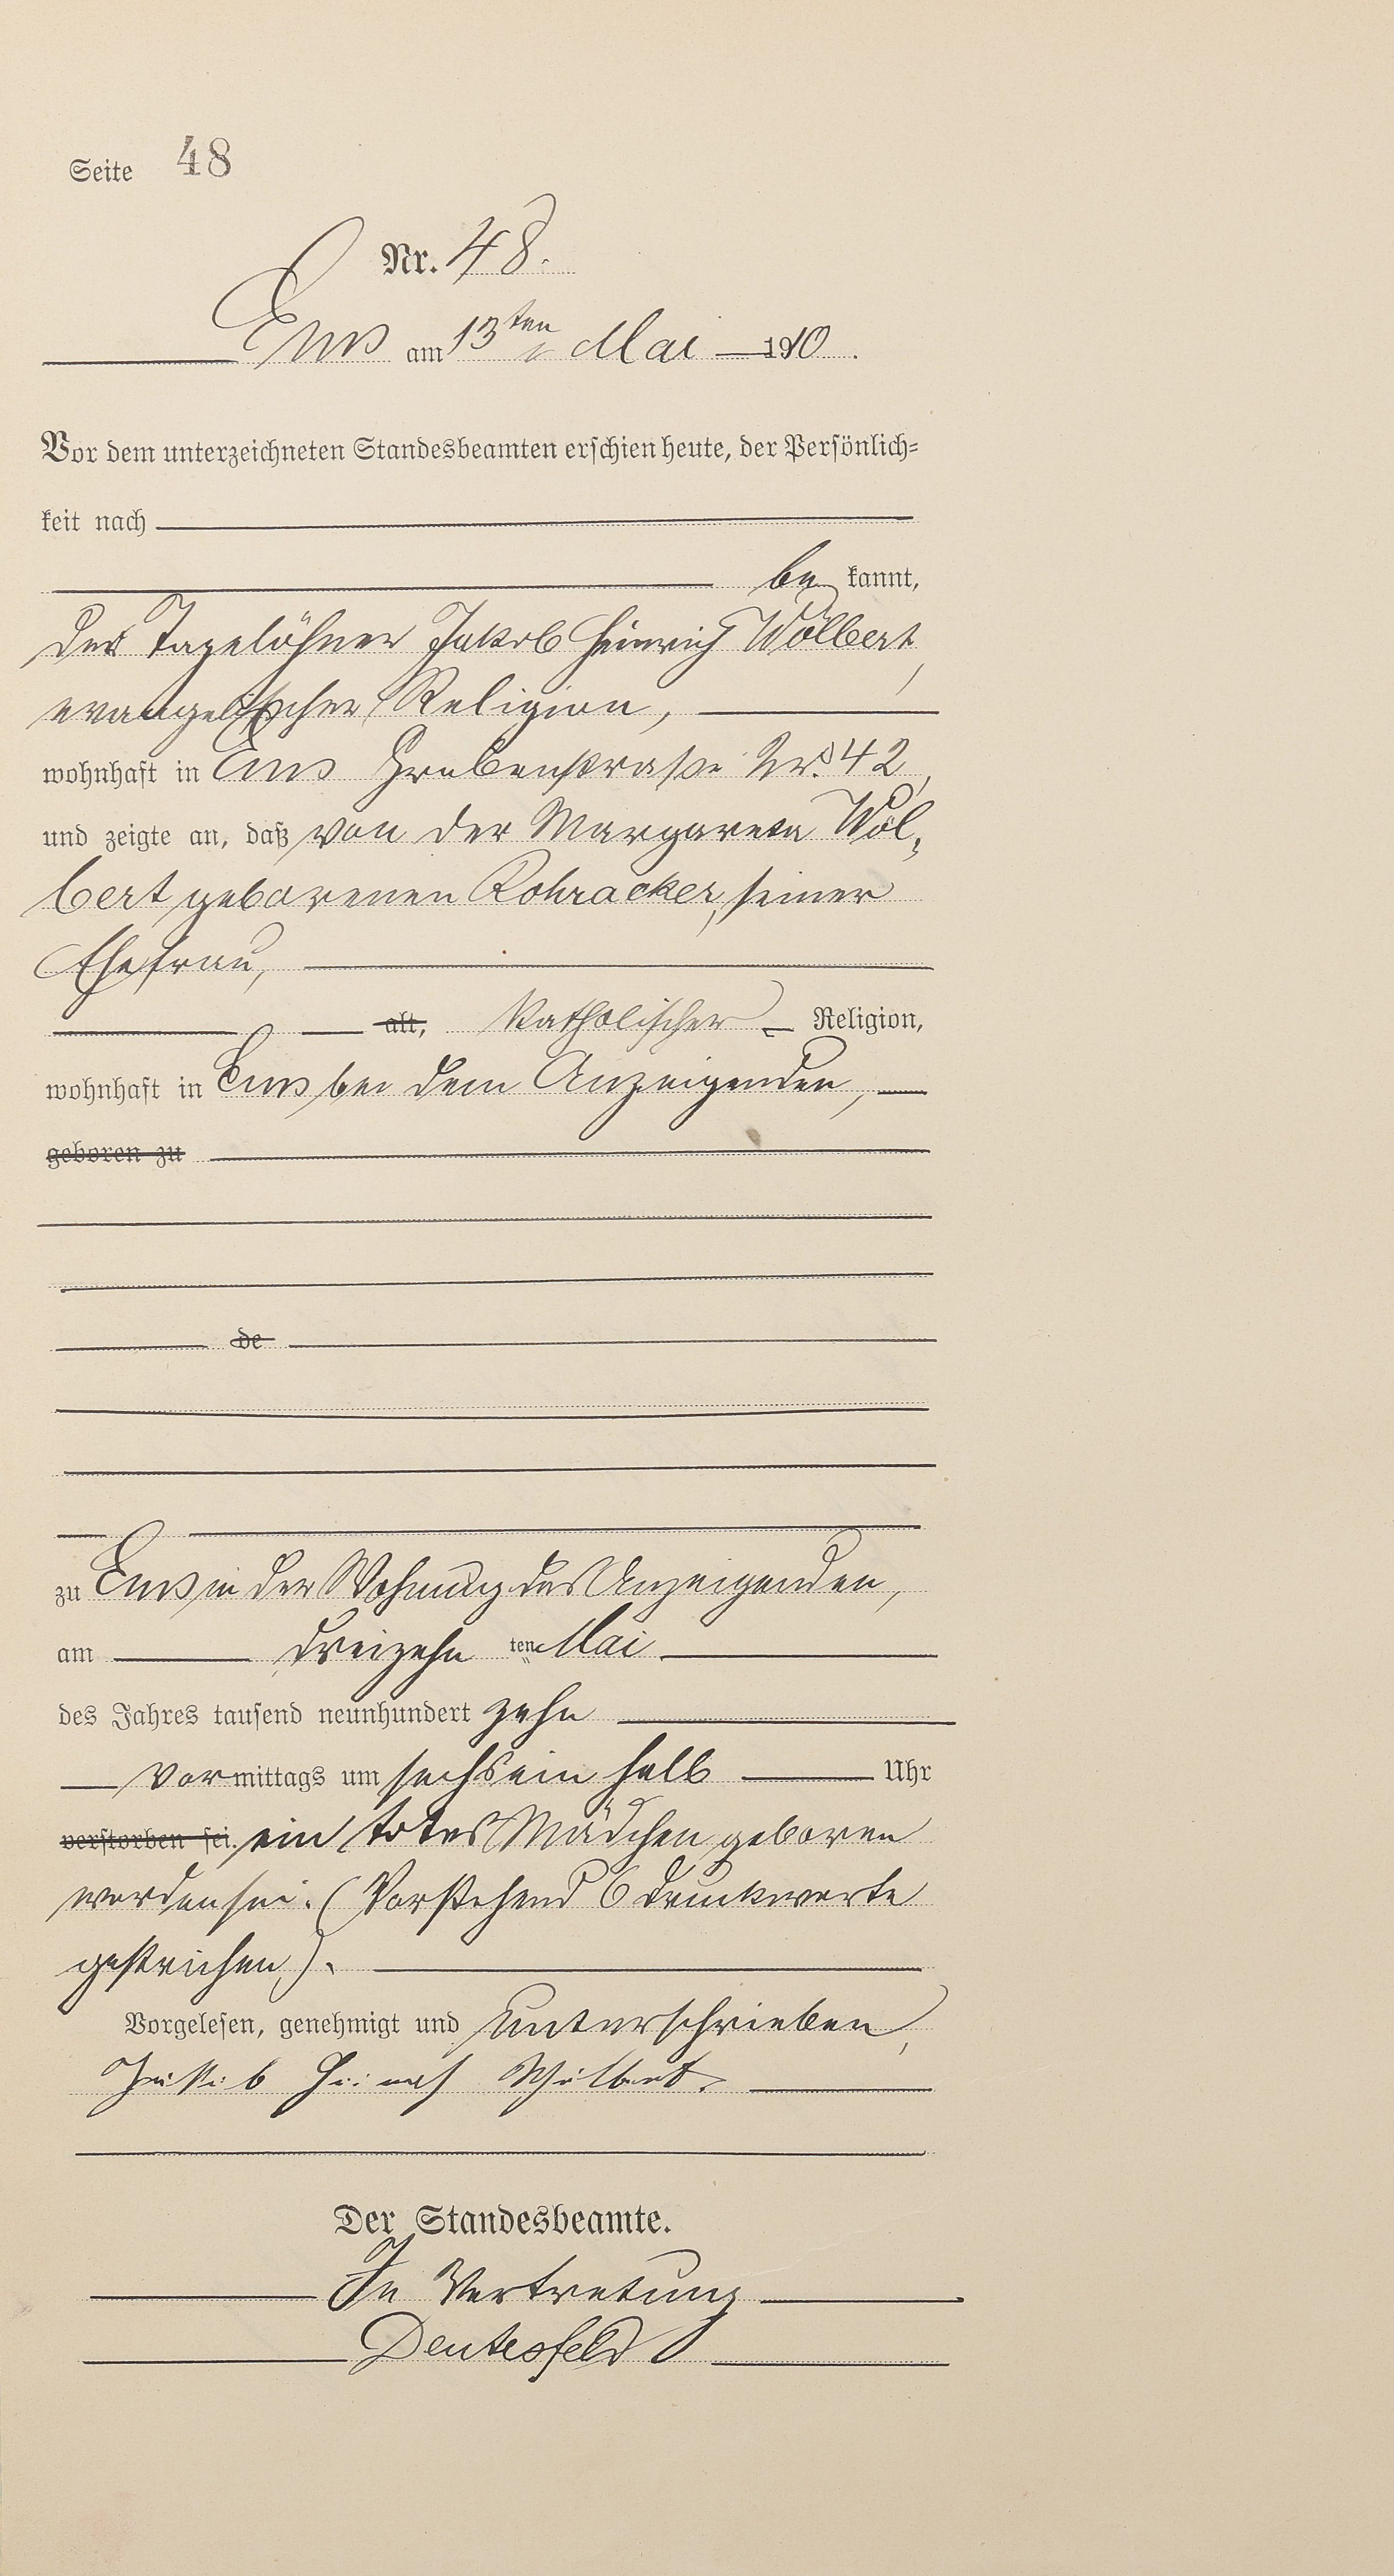 Seite 48
Nr. 48.
Ems am 13ten Mai 1910.
Vor dem unterzeichneten Standesbeamten erschien heute, der Persönlich-
keit nach
be kannt,
der Tagelöhner Jakob Heinrich Wölbert,
evangelischer Religion,
wohnhaft in Ems Grabenstraße Nr. 42,
und zeigte an, daß von der Margareta Wöl-
bert geborenen Rohracker, seiner
Ehefrau,
alt, katholischer Religion,
wohnhaft in Ems bei dem Anzeigenden,
geboren zu
de
zu Ems in der Wohnung des Anzeigenden,
am dreizehn ten Mai
des Jahres tausend neunhundert zehn
vor mittags um sechs ein halb Uhr
verstorben sei. ein totes Mädchen geboren
worden sei. (Vorstehend 6 Druckworte
gestrichen).
Vorgelesen, genehmigt und unterschrieben,
Jakob Heinrich Wölbert.
Der Standesbeamte.
In Vertretung
Dentesfeld